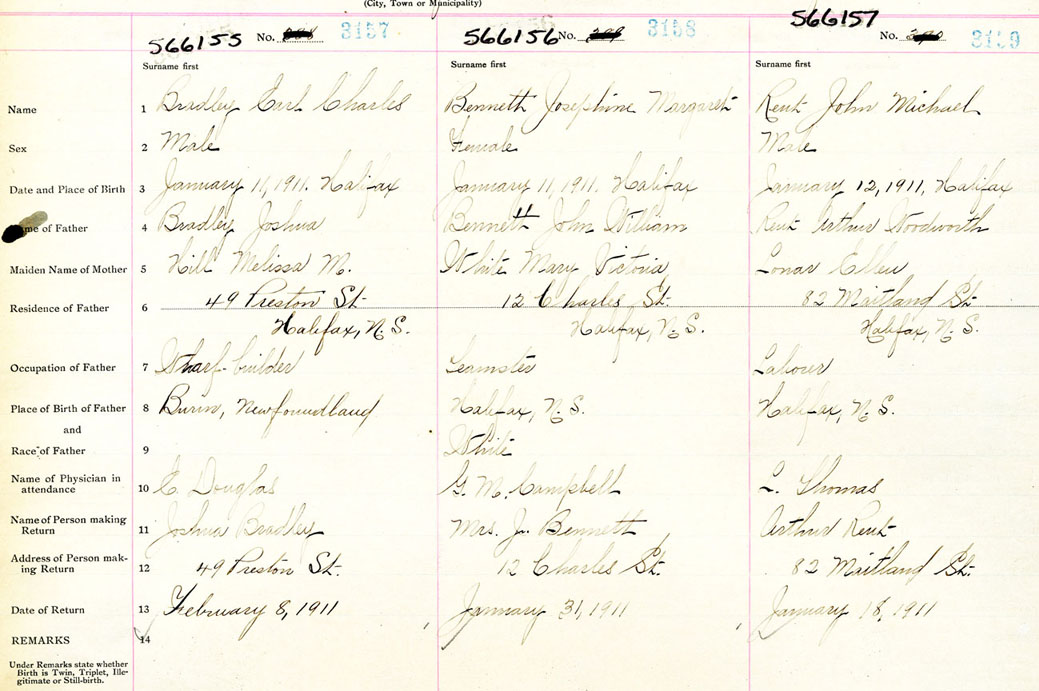 (City, Town or Municipality)
566155 No. 3157 566156 No. 3158 566157 No. 3159
Surname first Surname first Surname first
Name 1 Bradley Earl Charles Bennett Josephine Margaret Kent John Michael
Sex 2 Male Female Male
Date and Place of Birth 3 January 11, 1911. Halifax January 11, 1911. Halifax January 12, 1911, Halifax
Name of Father 4 Bradley Joshua Bennett John William Kent Arthur Woodworth
Maiden Name of Mother 5 Hill Melissa M. White Mary Victoria Lonar Ellen
Residence of Father 6 49 Preston St. 12 Charles St. 82 Maitland St.
Halifax, N.S. Halifax, N.S. Halifax, N.S.
Occupation of Father 7 Wharf-builder Teamster Labourer
Place of Birth of Father 8 Burin, Newfoundland Halifax, N.S. Halifax, N.S.
and
Race of Father 9 White
Name of Physician in
attendance 10 E. Douglas G. M. Campbell L. Thomas
Name of Person making
Return 11 Joshua Bradley Mrs. J. Bennett Arthur Kent
Address of Person mak-
ing Return 12 49 Preston St. 12 Charles St. 82 Maitland St.
Date of Return 13 February 8, 1911 January 31, 1911 January 18, 1911
REMARKS 14
Under Remarks state whether
Birth is Twin, Triplet, Ille-
gitimate or Still-birth.